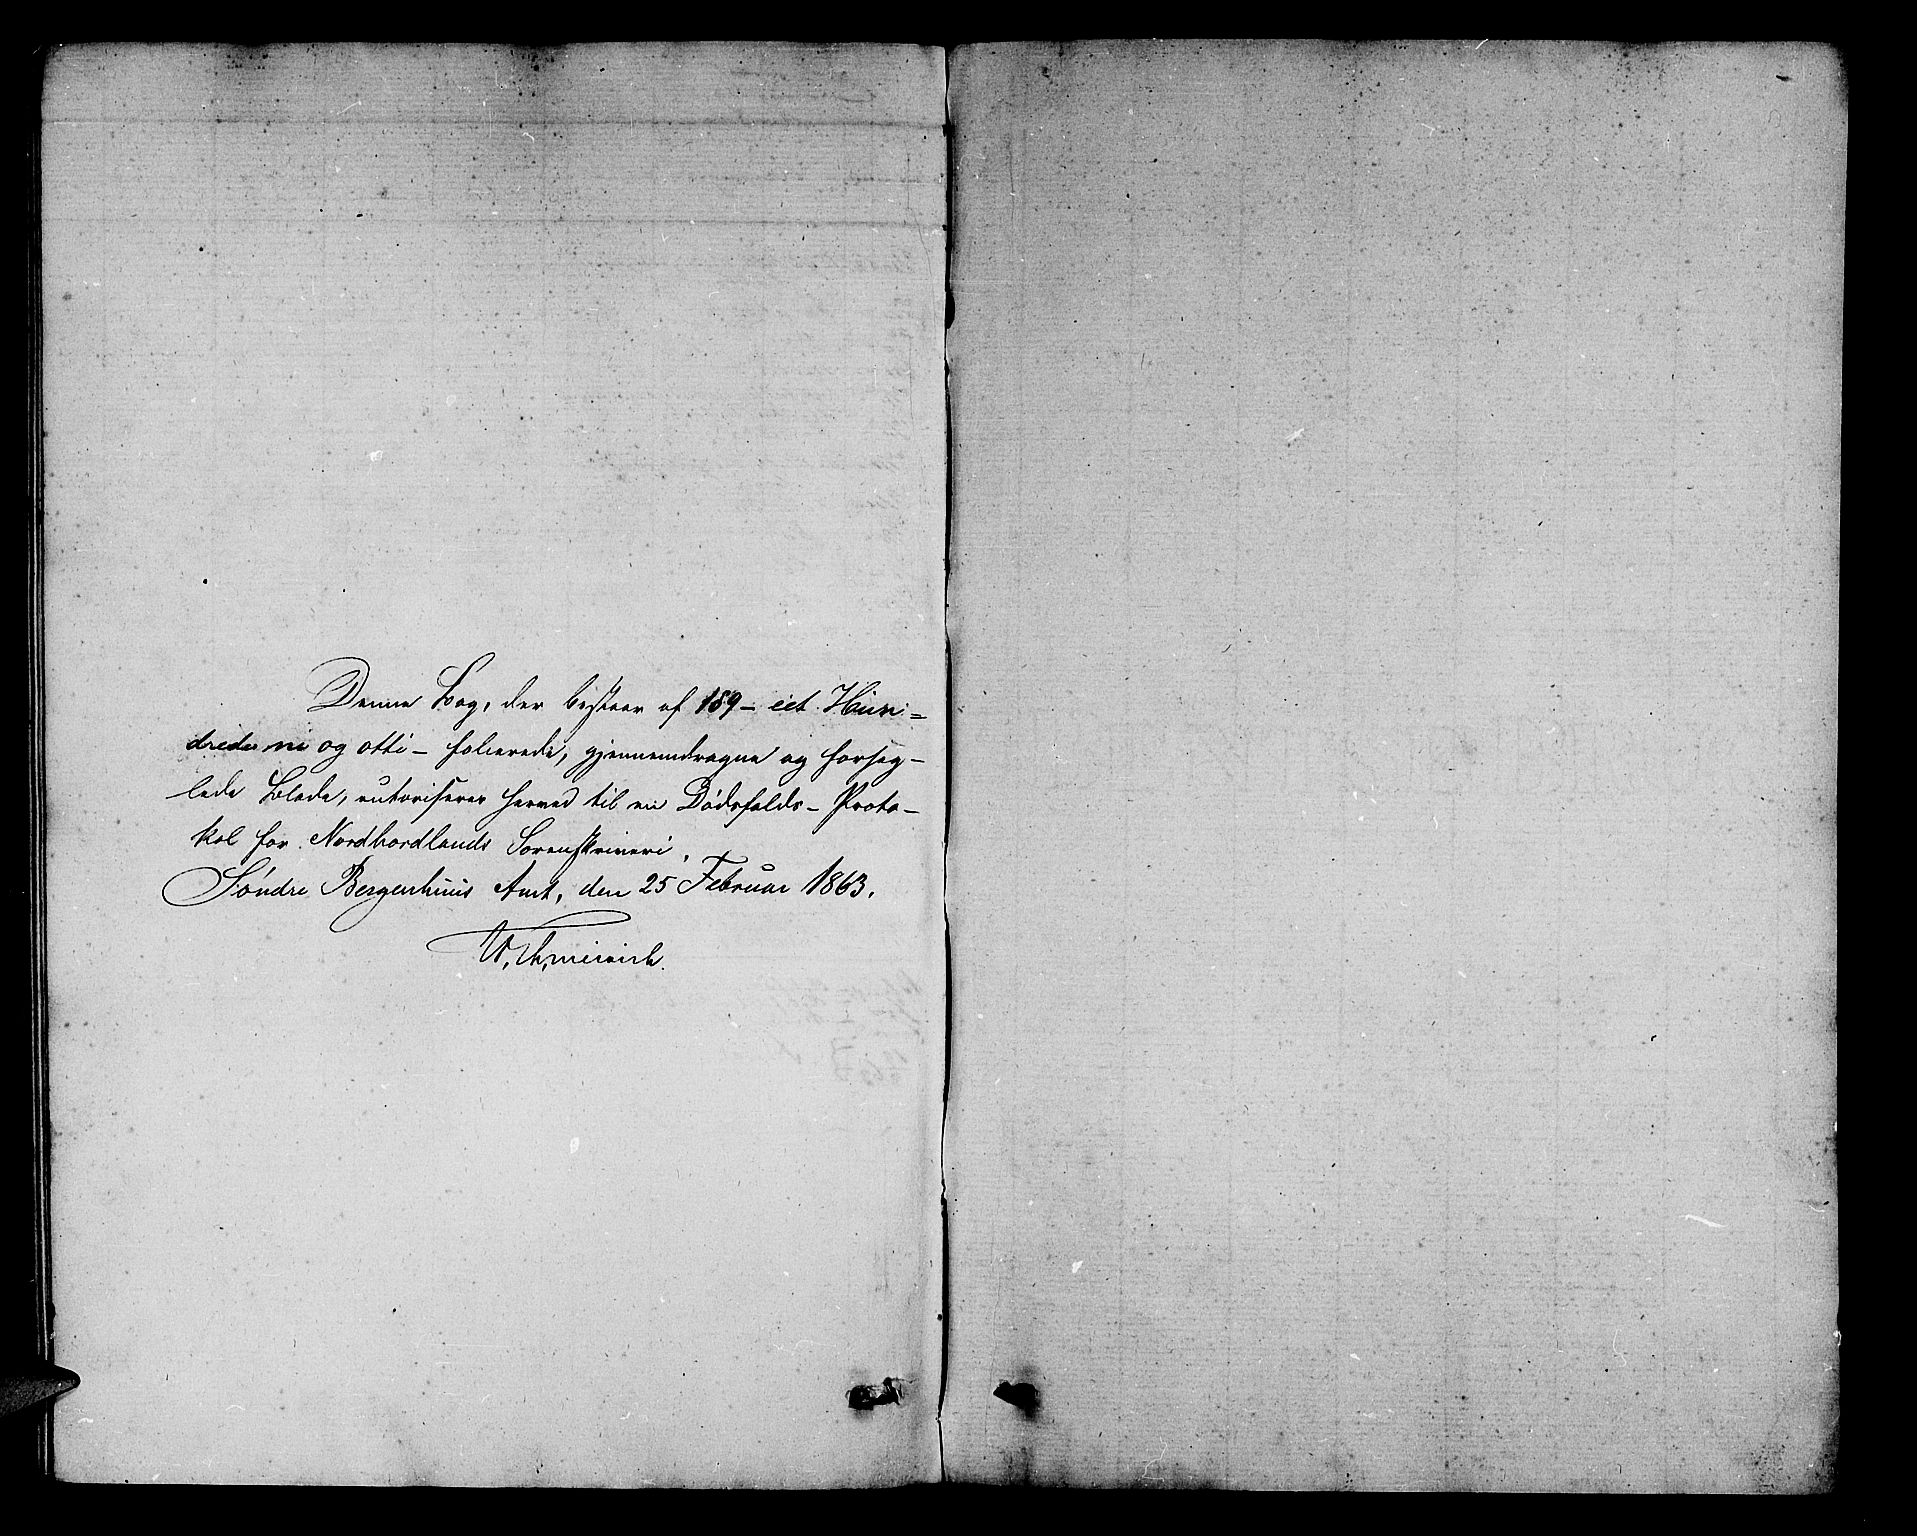 Denne Bog, der bestaar af 189 – eet Hun=
drede ni og otti – folierede, gjennemdragne og forseg–
lede Blade, autoriseres herved til en Dødsfalds– Proto–
kol for Nordhordlands Sorenskriveri.
Søndre Bergenhuus Amt, den 25 Februar 1863.